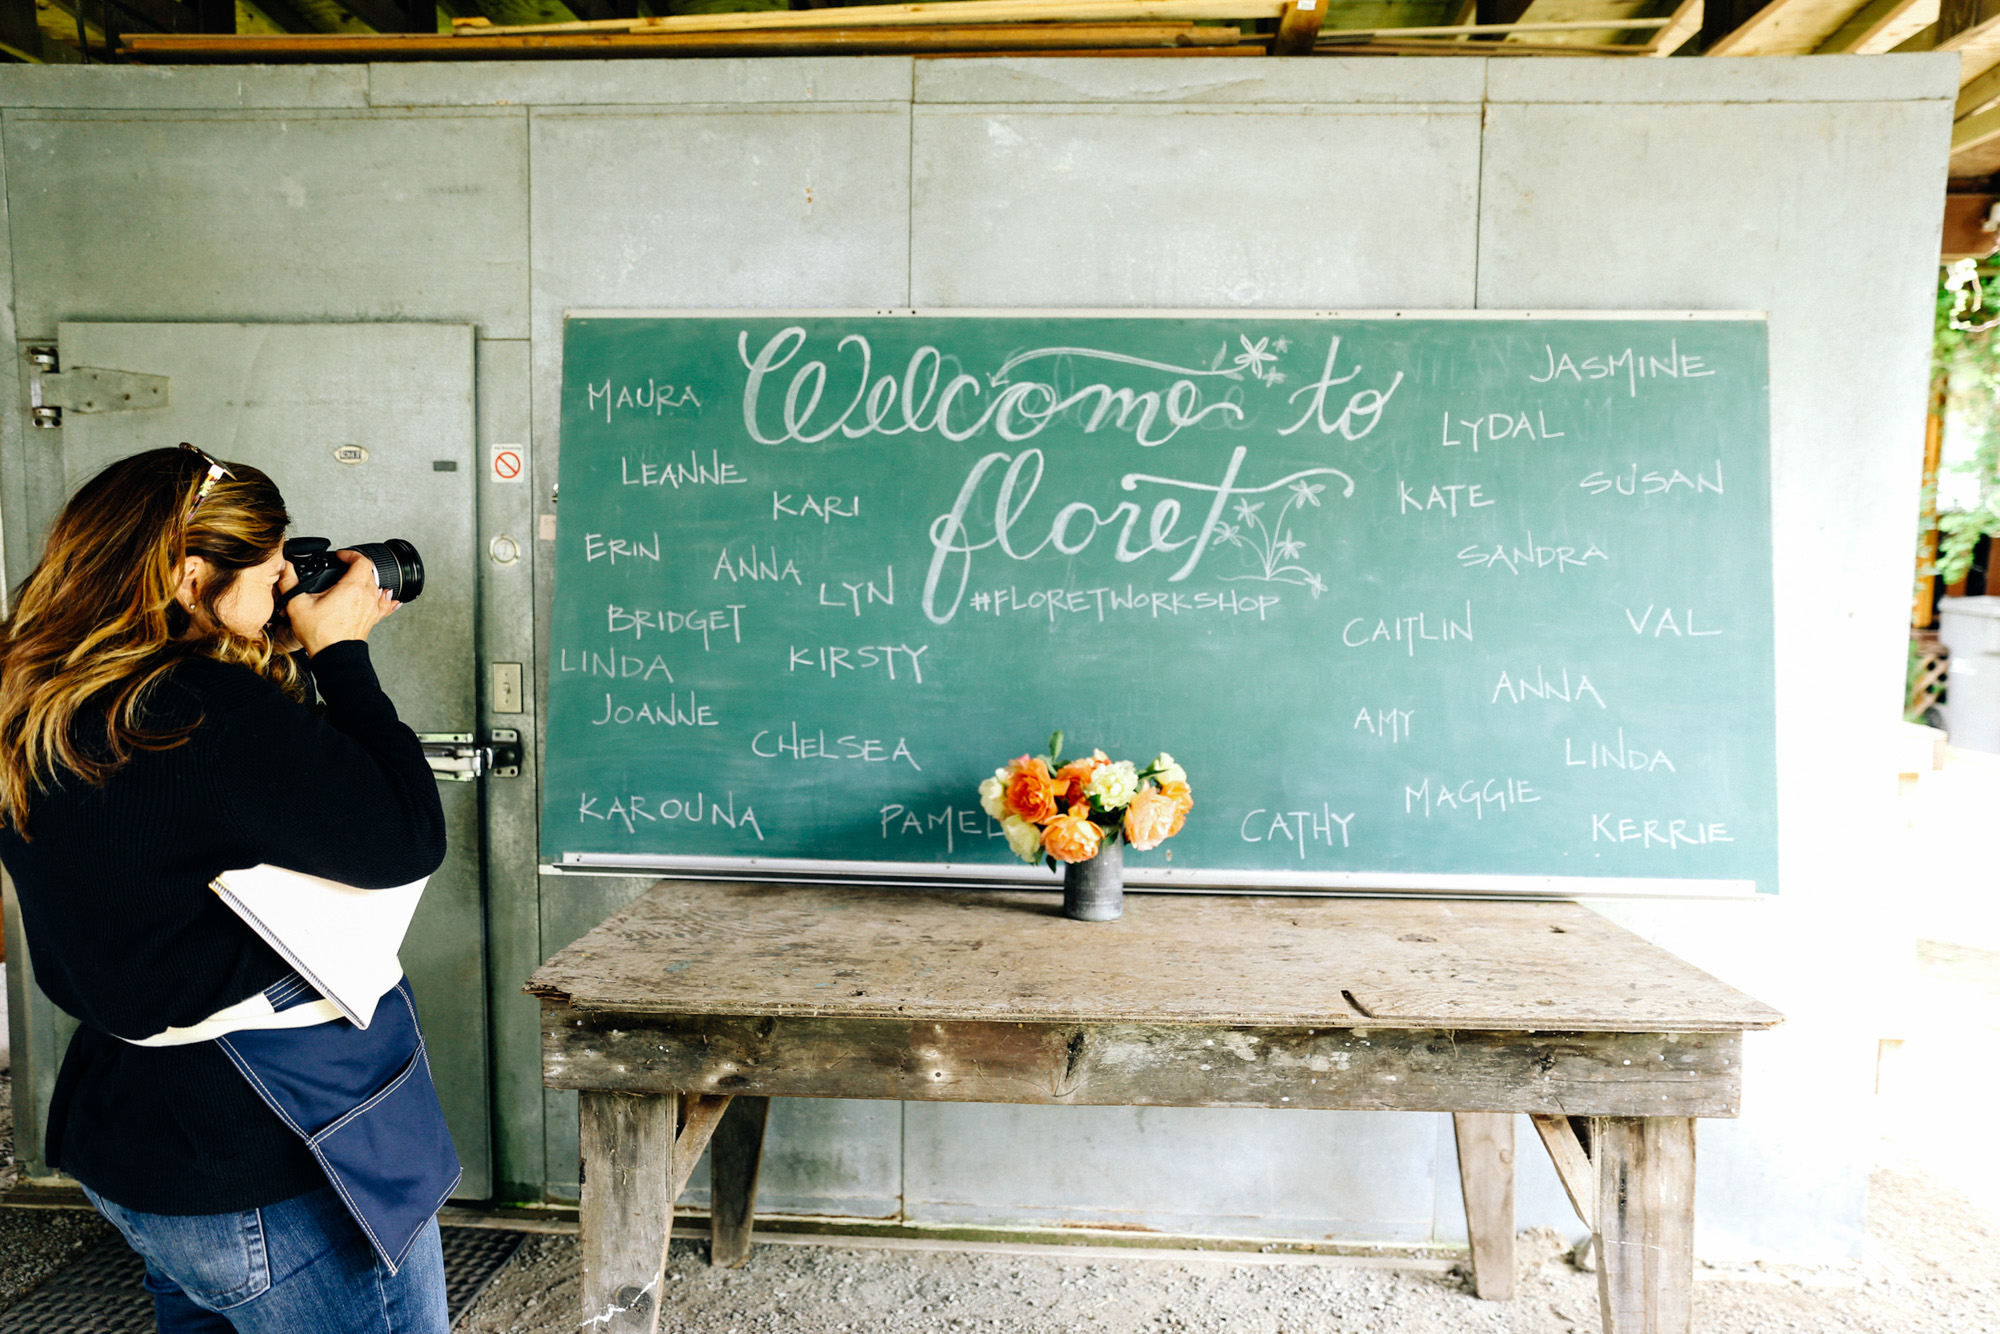 Welcome to
floret
#FLORETWORKSHOP
MAURA
LEANNE
KARI
ERIN
ANNA
LYN
BRIDGET
LINDA
KIRSTY
JOANNE
CHELSEA
KAROUNA
PAMEL
JASMINE
LYDAL
KATE
SUSAN
SANDRA
CAITLIN
VAL
ANNA
AMY
LINDA
MAGGIE
CATHY
KERRIE